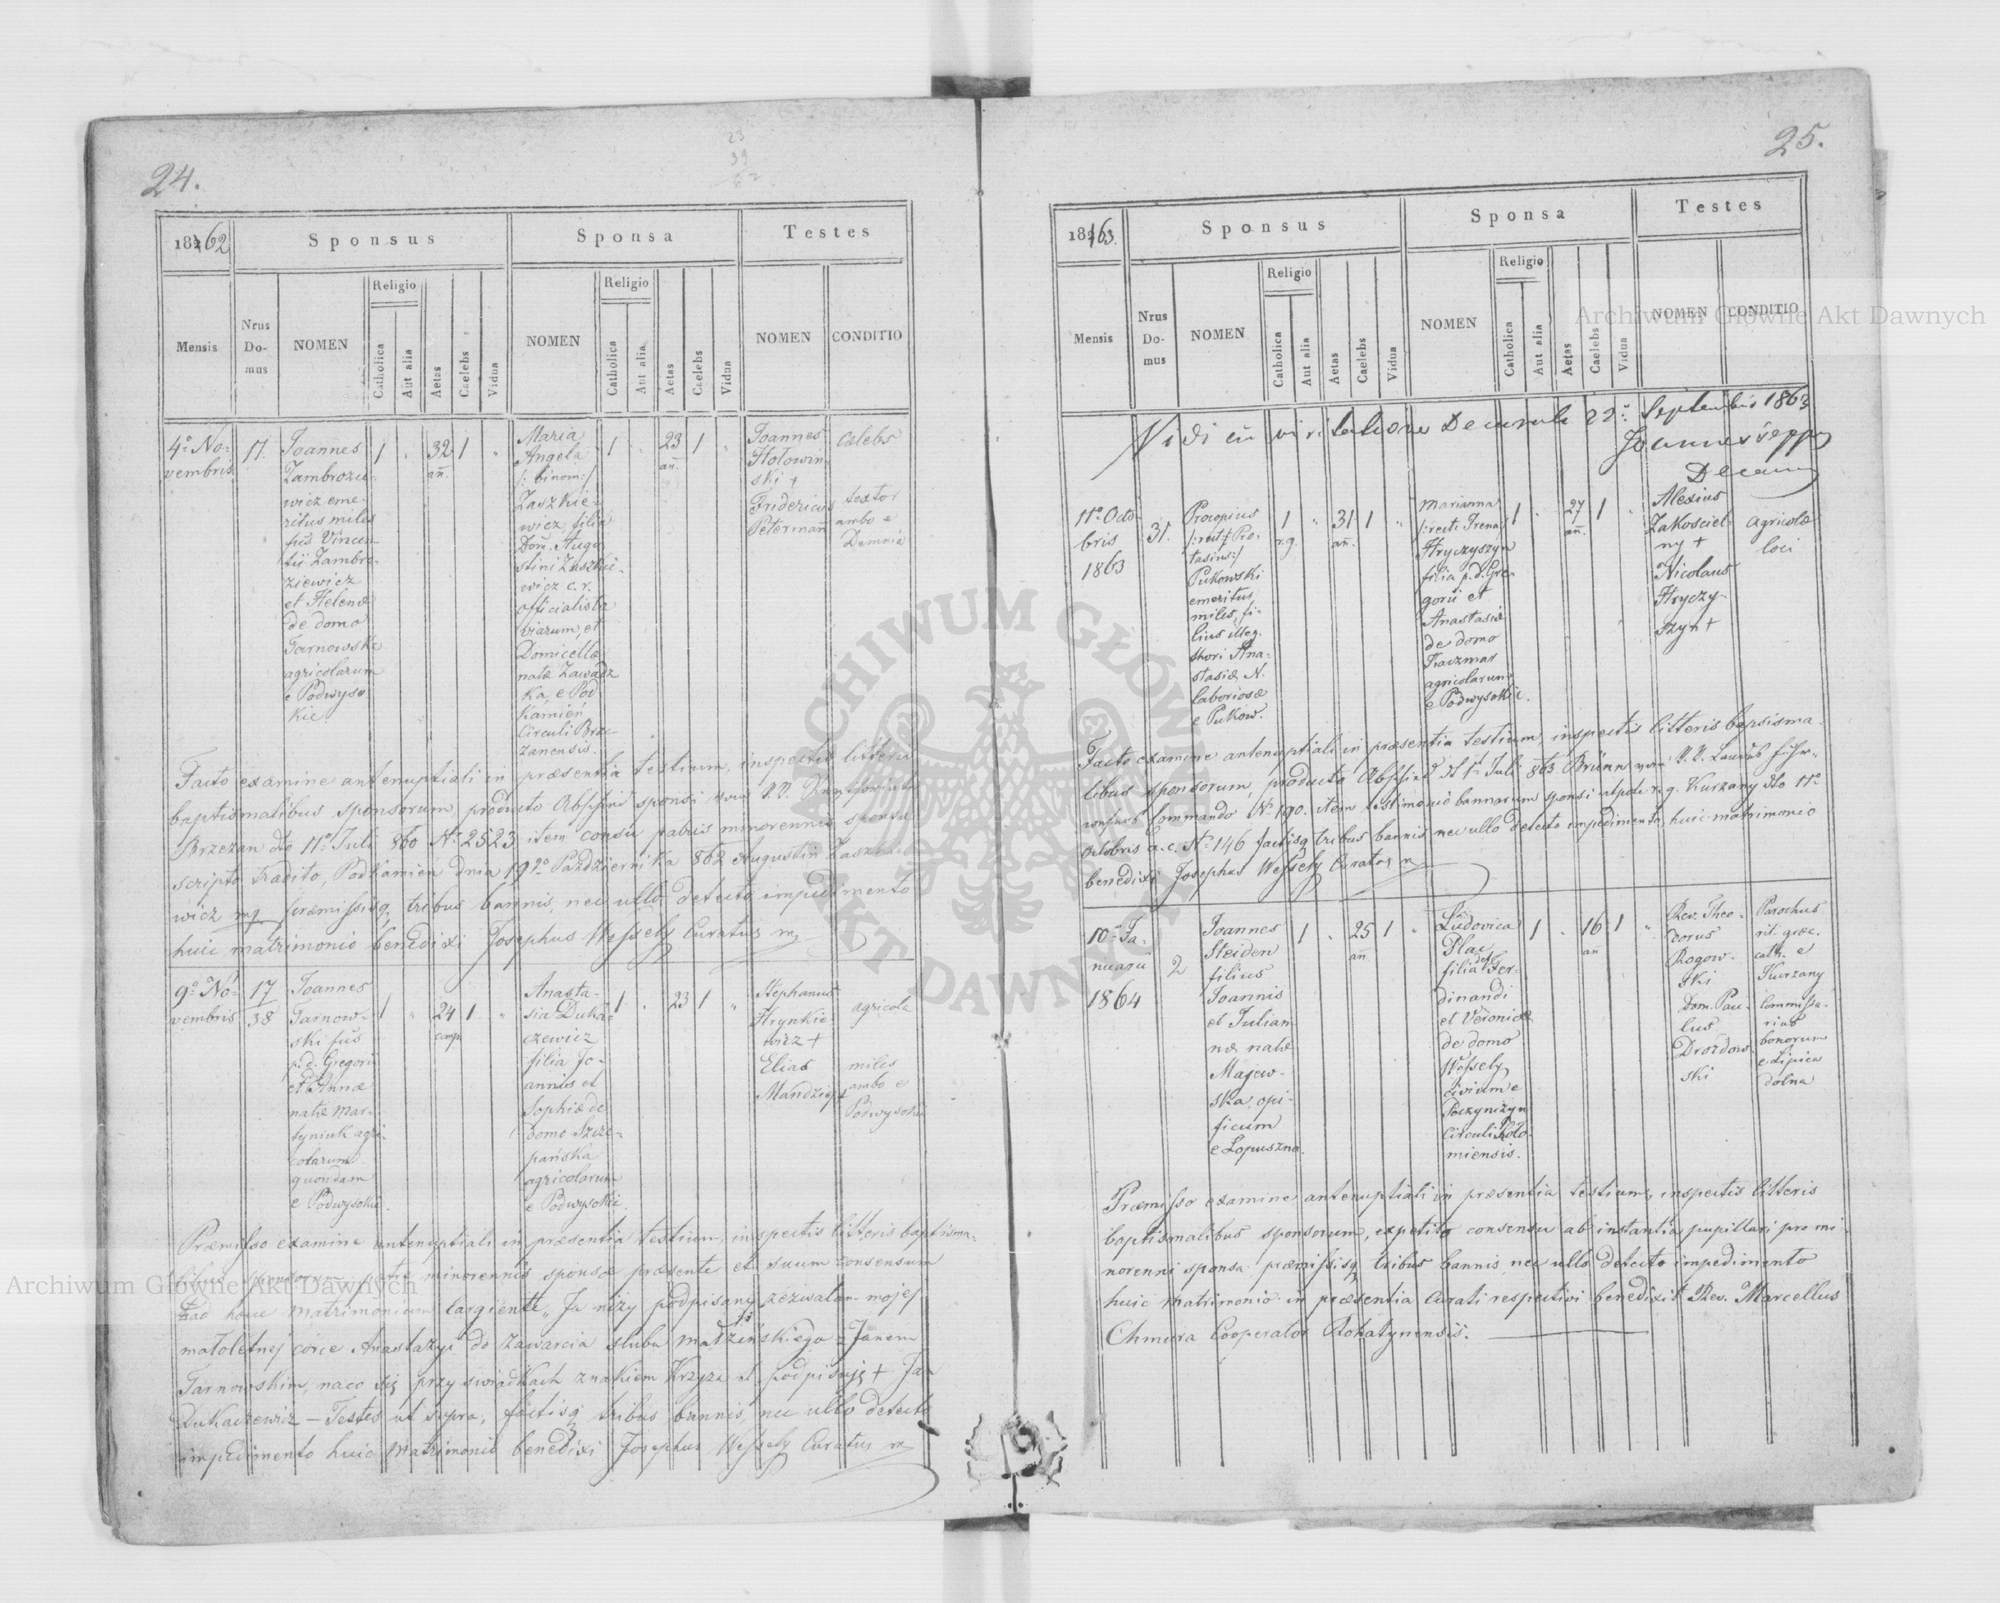 24.
1862
Sponsus
Sponsa
Testes
Mensis
Nrus Do-mus
NOMEN
Religio
Catholica
Aut alia
Aetas
Caelebs
Vidua
NOMEN
Religio
Catholica
Aut alia
Aetas
Caelebs
Vidua
NOMEN
CONDITIO
4º No-
vembris
17.
Joannes
Zambrozie-
wicz eme-
ritus miles
fius Vincen-
tii Zambro-
ziewicz
et Helenæ
de domo
Tarnowskie
agricolarum
e Podwyso
kie.
1
"
32
añ.
1
"
Maria
Angela
/: binom:/
Zaszkie-
wicz filia
Dom. Augu-
stini Zaszkie-
wicz c. r.
officialista
viarum, et
Domicellæ
natæ Zawadz
ka, e Pod
kamień
Circuli Brze-
zanensis.
1
"
23
añ.
1
"
Joannes
Hołowin-
ski +
Fridericus
Peterman
Celebs
textor
ambo e
Demnia
Facto examine antenuptiali in præsentia testium, inspectis litteris
baptismalibus sponsorum, producto Abschied sponsi vom
Brzezan dto 11º Juli 860 Nº 2523 item consu patris minorennis sponsæ
scripto tradito, Podkamień dnia 19go Października 862 Augustin Zaszkie-
wicz mp præmissisq tribus bannis, nec ullo detecto impedimento
huic matrimonio benedixi Josephus Wessely Curatus mp
9º No-
vembris
17
38
Joannes
Tarnow-
ski fius
p. d. Gregorii
et Annæ
natæ Mar-
tyniuk agri-
colarum
quondam
e Podwysokie.
1
"
24
comp.
1
"
Anasta-
sia Duka-
czewicz
filia Jo-
annis et
Sophiæ de
domo Szcze-
pańska
agricolarum
e Podwysokie.
1
"
23
1
"
Stephanus
Hrynkie-
wicz +
Elias
Mandziy +
agricola
miles
ambo e
Podwysokie
Præmisso examine antenuptiali in præsentia testium, inspectis litteris baptisma-
libus sponsorum, patre minorennis sponsæ præsente et suum consensum
ad hocce matrimonium largiente, „Ja niży podpisany zezwalam mojej
małoletnej córce Anastazyi do zawarcia slubu małżeńskiego z Janem
Tarnowskim, naco się przy swiadkach znakiem Krzyża podpisuję + Jan
Dukaczewicz – Testes ut supra, factisq tribus bannis, nec ullo detecto
impedimento huic matrimonio benedixi Josephus Wessely Curatus mp
25.
1863.
Sponsus
Sponsa
Testes
Mensis
Nrus Do-mus
NOMEN
Religio
Catholica
Aut alia
Aetas
Caelebs
Vidua
NOMEN
Religio
Catholica
Aut alia
Aetas
Caelebs
Vidua
NOMEN
CONDITIO
Vidi in visitatione Decanali 22 Septembris 1863
Decanus
11º Octo-
bris
1863
31.
Procopius
/:rect: Pro-
tasius:/
Pukowski
emeritus
miles, fi-
lius illeg.
thori Ana-
stasiæ N.
laboriosæ
e Pukow.
1
r.g.
"
31
añ.
1
"
Marianna
/:rect. Irena
Hryczyszyn
filia p. d. Gre-
gorii et
Anastasiæ
de domo
Kaczmar
agricolarum
e Podwysokie.
1
"
27
añ.
1
"
Alexius
Zakosciel-
ny +
Nicolaus
Hryczy-
szyn +
agricolæ
loci
Facto examine antenuptiali in præsentia testium, inspectis litteris baptisma-
libus sponsorum, producto Abschied dt 1º Juli 863 Brünn vom
Commando Nº 190. item testimonio bannorum sponsi utpote r. g. Kurzany dto 11º
Octobris a. c. Nº 146 factisq tribus bannis nec ullo detecto impedimento, huic matrimonio
benedixi Josephus Wessely Curatus mp
10º Ja-
nuarii
1864
2
Joannes
Steiden
filius
Joannis
et Julian-
næ natæ
Majew-
ska, opi-
ficum
e Lopuszna.
1
"
25
añ
1
"
Ludovica
Plac
filia Fer-
dinandi
et Veronicæ
de domo
Wessely
civium e
Poczynizyn
Circuli Kolo-
miensis.
1
"
16
añ
1
"
Rev. Theo-
dorus
Rogow-
ski
Dom. Pau-
lus
Drozdow-
ski
Parochus
rit. græc.
cath. e
Kurzany
Commissa-
rius
bonorum
e Lipica
dolna
Præmisso examine antenuptiali in præsentia testium, inspectis litteris
baptismalibus sponsorum, expetito consensu ab instantia pupillari pro mi
norenni sponsa, præmissisq tribus bannis, nec ullo detecto impedimento
huic matrimonio in præsentia Curati respectivi benedixit Rev. Marcellus
Chmura Cooperator Rohatynensis.
Archiwum Główne Akt Dawnych
Archiwum Główne Akt Dawnych
ARCHIWUM GŁÓWNE AKT DAWNYCH